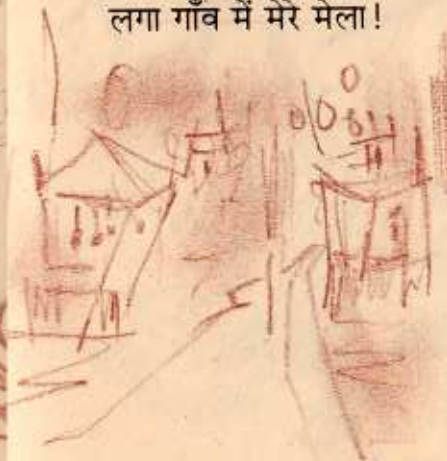 लगा गाँव में मेरे मेला!